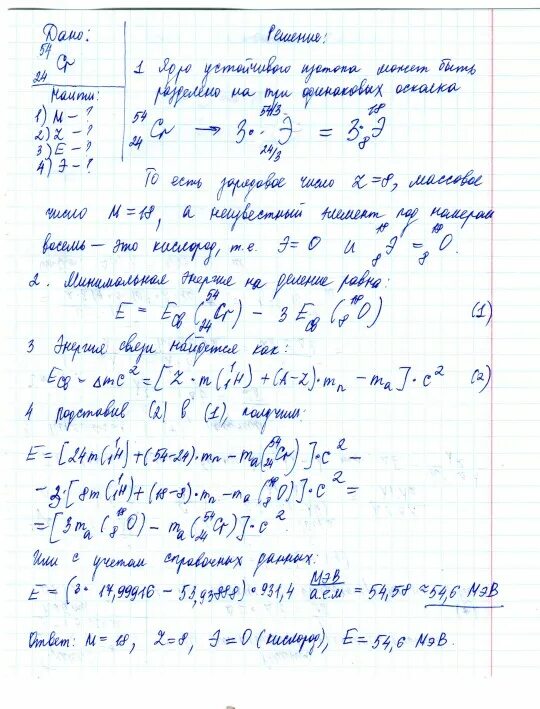 Дано:
⁵⁴₂₄Cr
Найти:
1) M - ?
2) Z - ?
3) E - ?
4) Э - ?
Решение:
1 Ядро устойчивого изотопа может быть
разделено на три одинаковых осколка
⁵⁴₂₄Cr → 3 · ⁵⁴/³₂₄/₃Э = 3 · ¹⁸₈Э
То есть зарядовое число Z = 8, массовое
число M = 18, а неизвестный элемент под номером
восемь — это кислород, т.е. Э = O и ¹⁸₈Э = ¹⁸₈O.
2. Минимальная энергия на деление равна:
E = Eсв(⁵⁴₂₄Cr) - 3 Eсв(¹⁸₈O) (1)
3 Энергия связи найдется как:
Eсв = Δmc² = [Z · m(¹₁H) + (A-Z) · mₙ - mₐ] · c² (2)
4 Подставив (2) в (1), получим:
E = [24m(¹₁H) + (54-24) · mₙ - mₐ(⁵⁴₂₄Cr)] · c² -
- 3 · [8m(¹₁H) + (18-8) · mₙ - mₐ(¹⁸₈O)] · c² =
= [3mₐ(¹⁸₈O) - mₐ(⁵⁴₂₄Cr)] · c².
Или с учетом справочных данных:
E = (3 · 17,99916 - 53,93888) · 931,4 МэВ/аем = 54,58 ≈ 54,6 МэВ
Ответ: M = 18, Z = 8, Э = O (кислород), E = 54,6 МэВ.